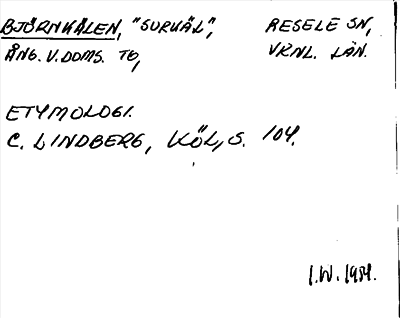 BJÖRNKÅLEN, "SURKÅL", RESELE SN,
ÅNG. V. DOMS. TG, VRNL. LÄN.
ETYMOLOGI.
C. LINDBERG, KÖL, S. 104.
I.W. 1984.